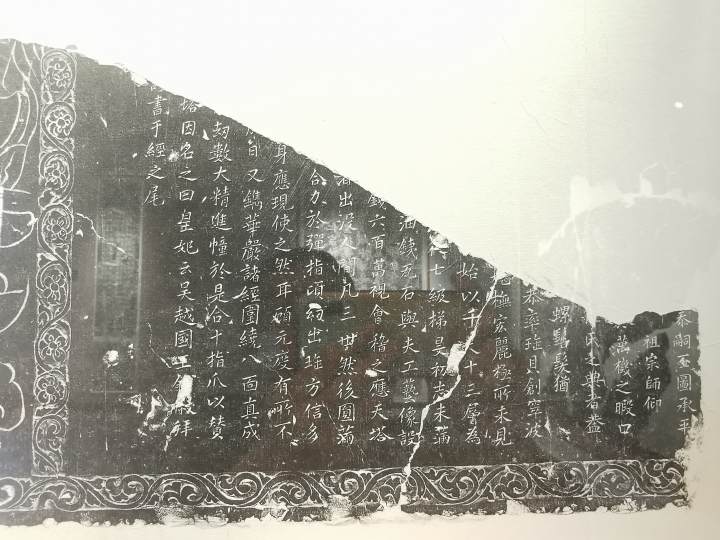 忝嗣丕圖承平
祖宗師仰
萬機之暇口
氏之典者蓋
螺髻髮猶
恭率瑤具創窣波
規撫宏麗極所未見
始以千尺十三層為
七級梯旻初志未滿
油錢瓦石與夫工藝像設
錢六百萬視會稽之應天塔
者出没人間凡三世然後圓滿
合力於彈指頃幻出瑤方信多
身應現使之然耳頋元度有所不
日又鐫華嚴諸經圍繞八面真成
劫數大精進幢於是合十指爪以贊
塔因名之曰皇妃云吳越國王錢俶拜
書于經之尾